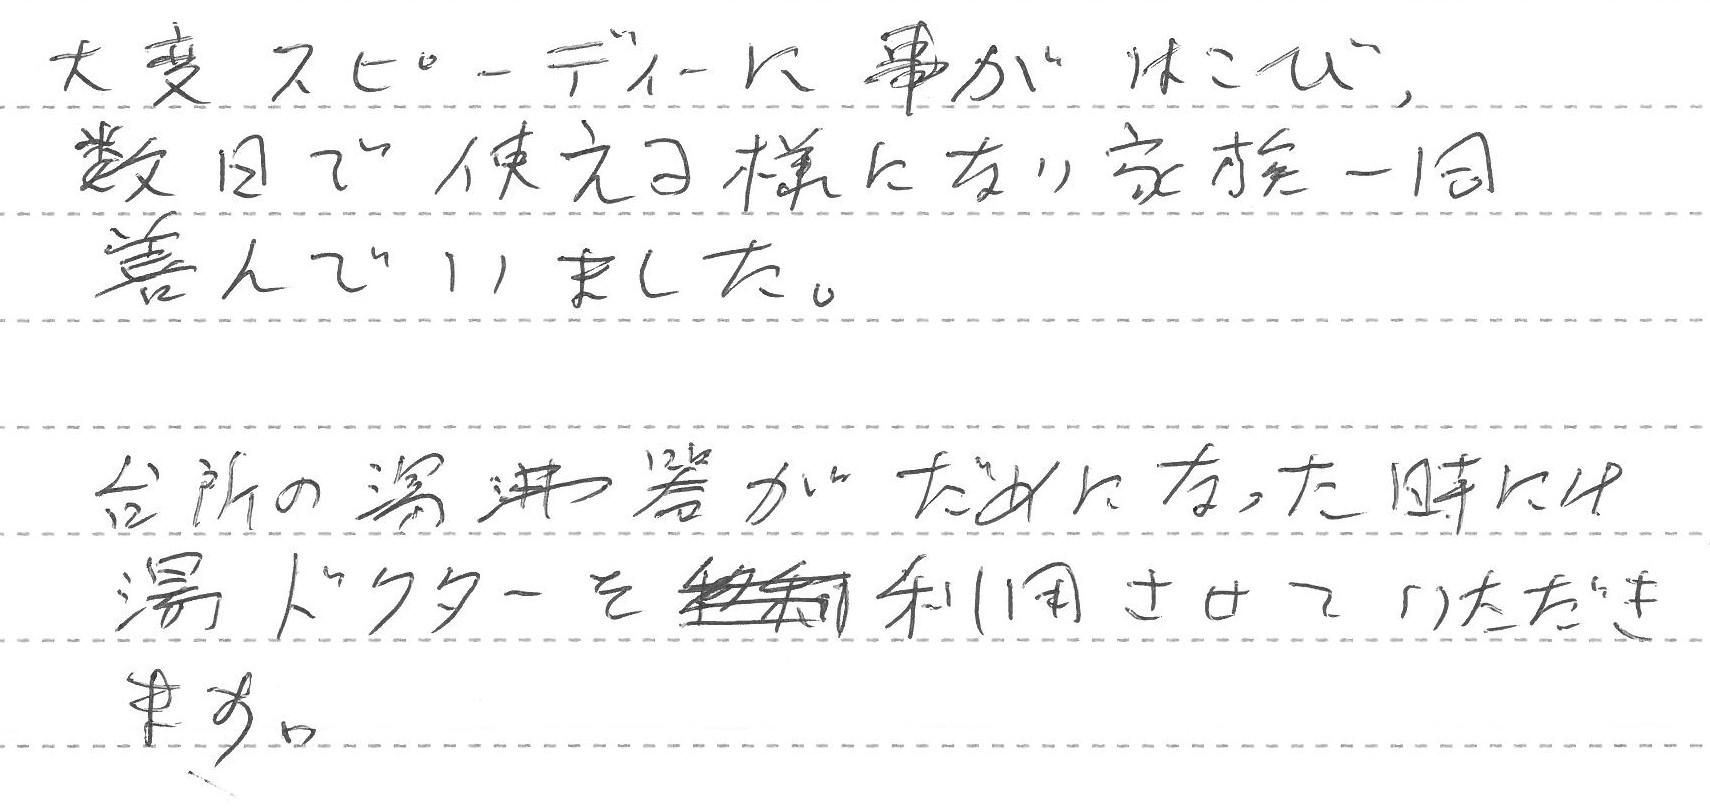 大変スピーディーに事がはこび、
数日で使える様になり家族一同
喜んでいました。
台所の湯沸器がだめになった時には
湯ドクターを利用させていただき
ます。